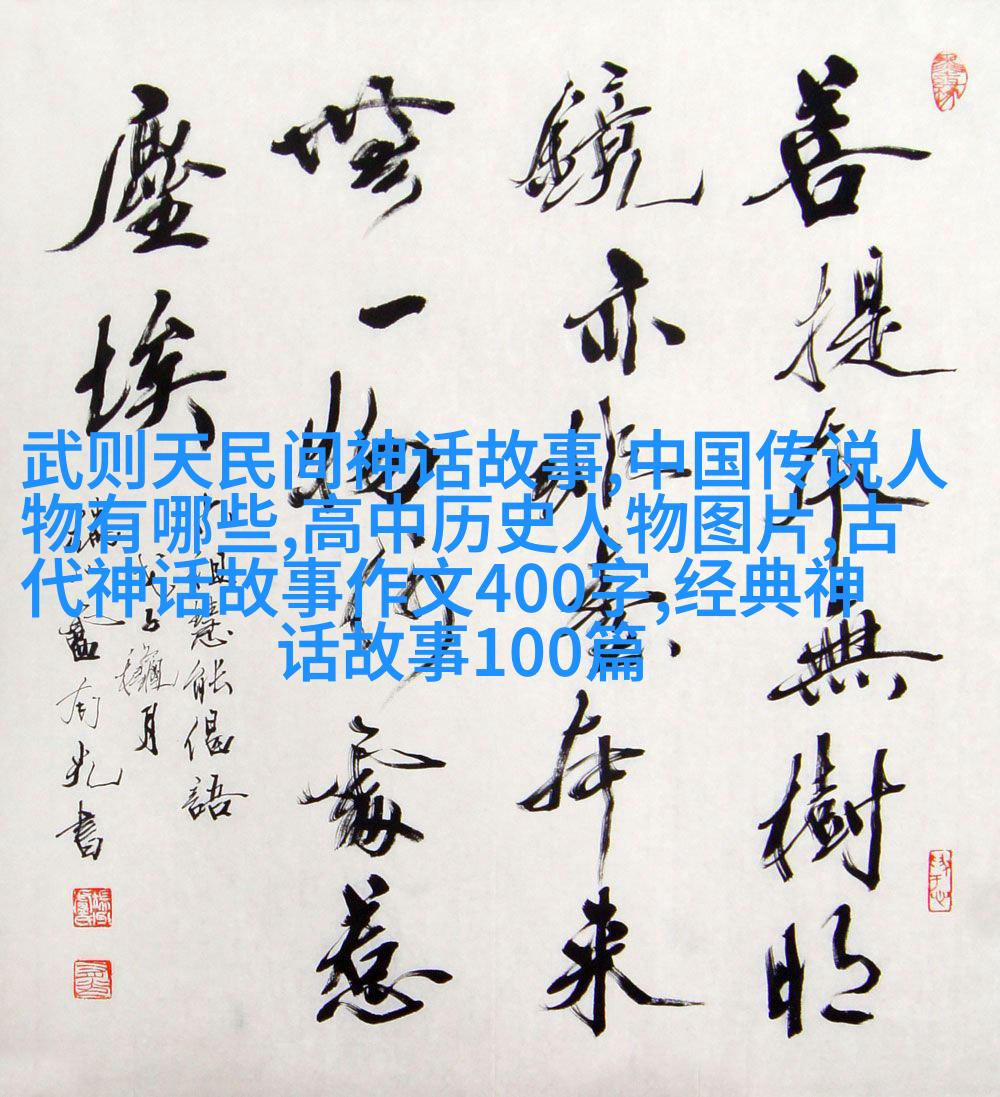 菩提本無樹明
鏡亦非臺本来
無一物何處惹
塵埃
祖慧能偈語
月
書
武则天民间神话故事,中国传说人
物有哪些,高中历史人物图片,古
代神话故事作文400字,经典神
话故事100篇